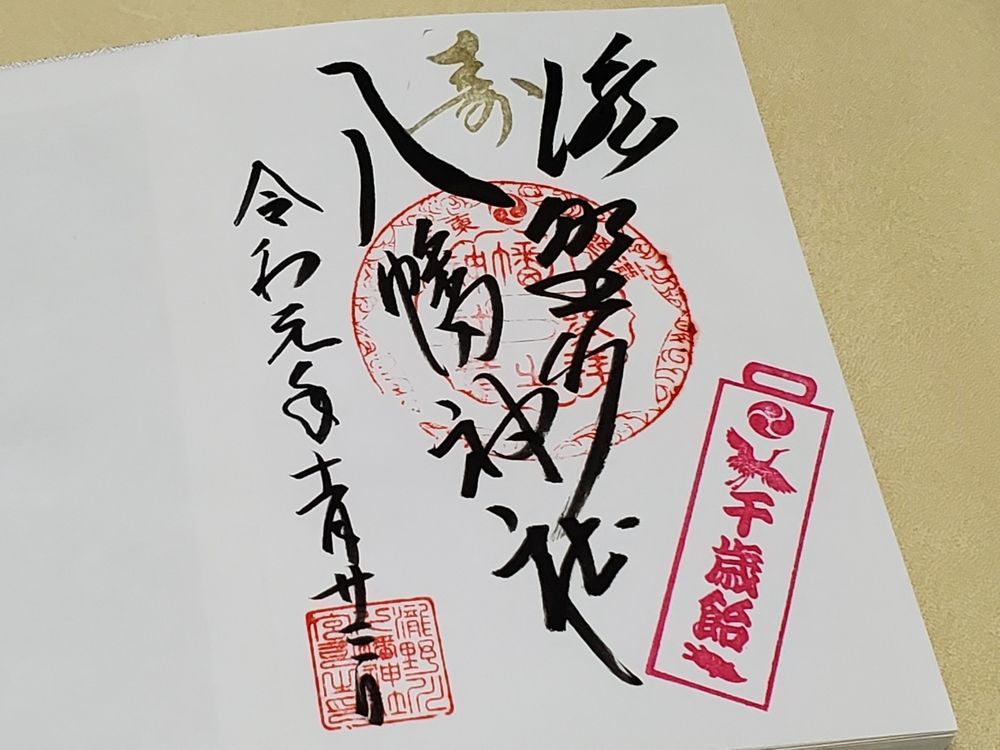 滝野川
八幡神社
寿
令和元年十一月廿二日
千歳飴
瀧野川
八幡神社